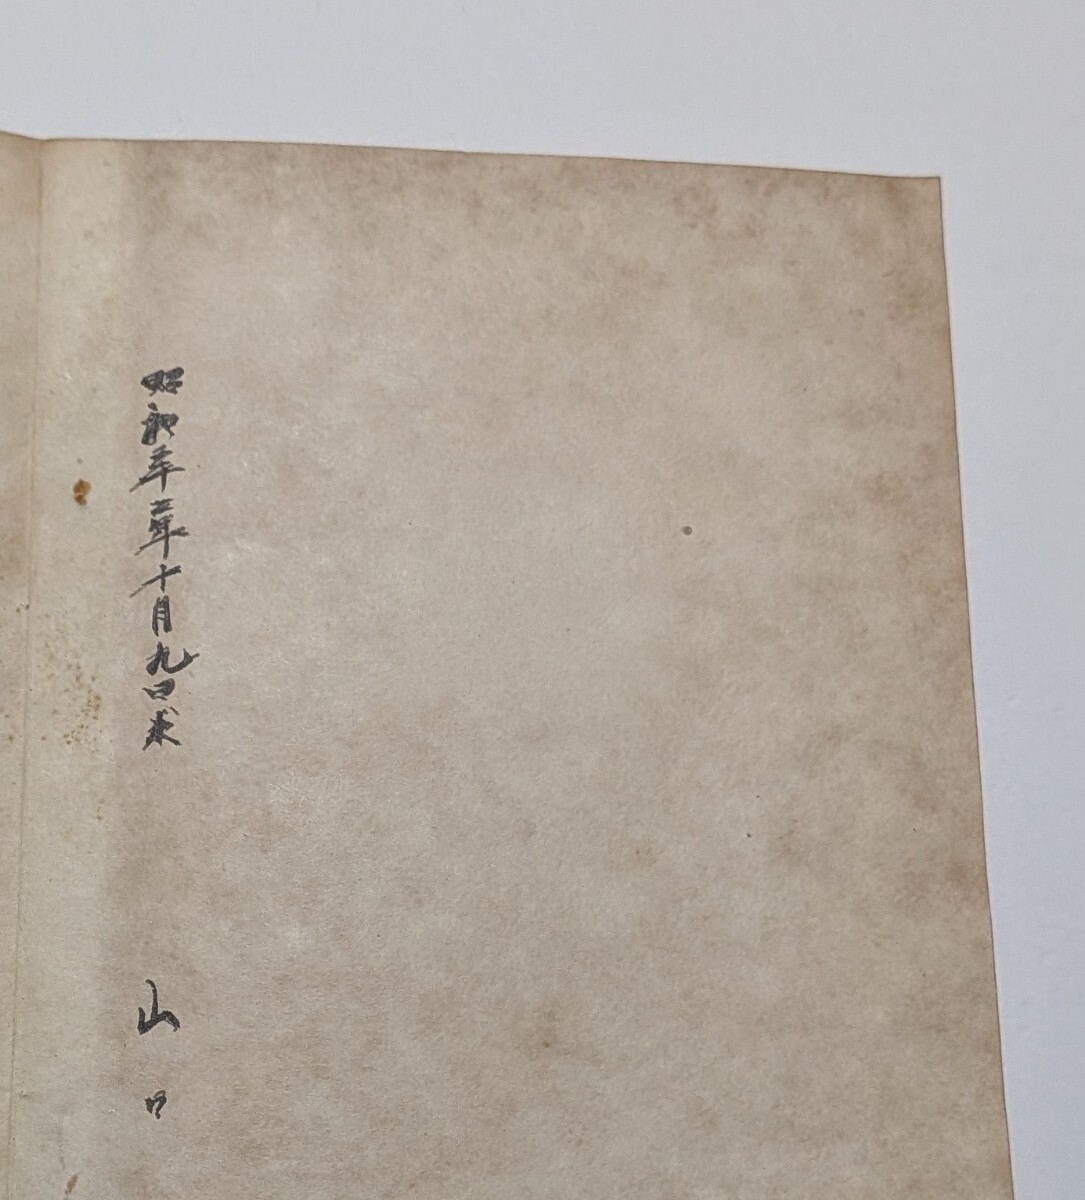 昭和三十二年十月九日求
山口